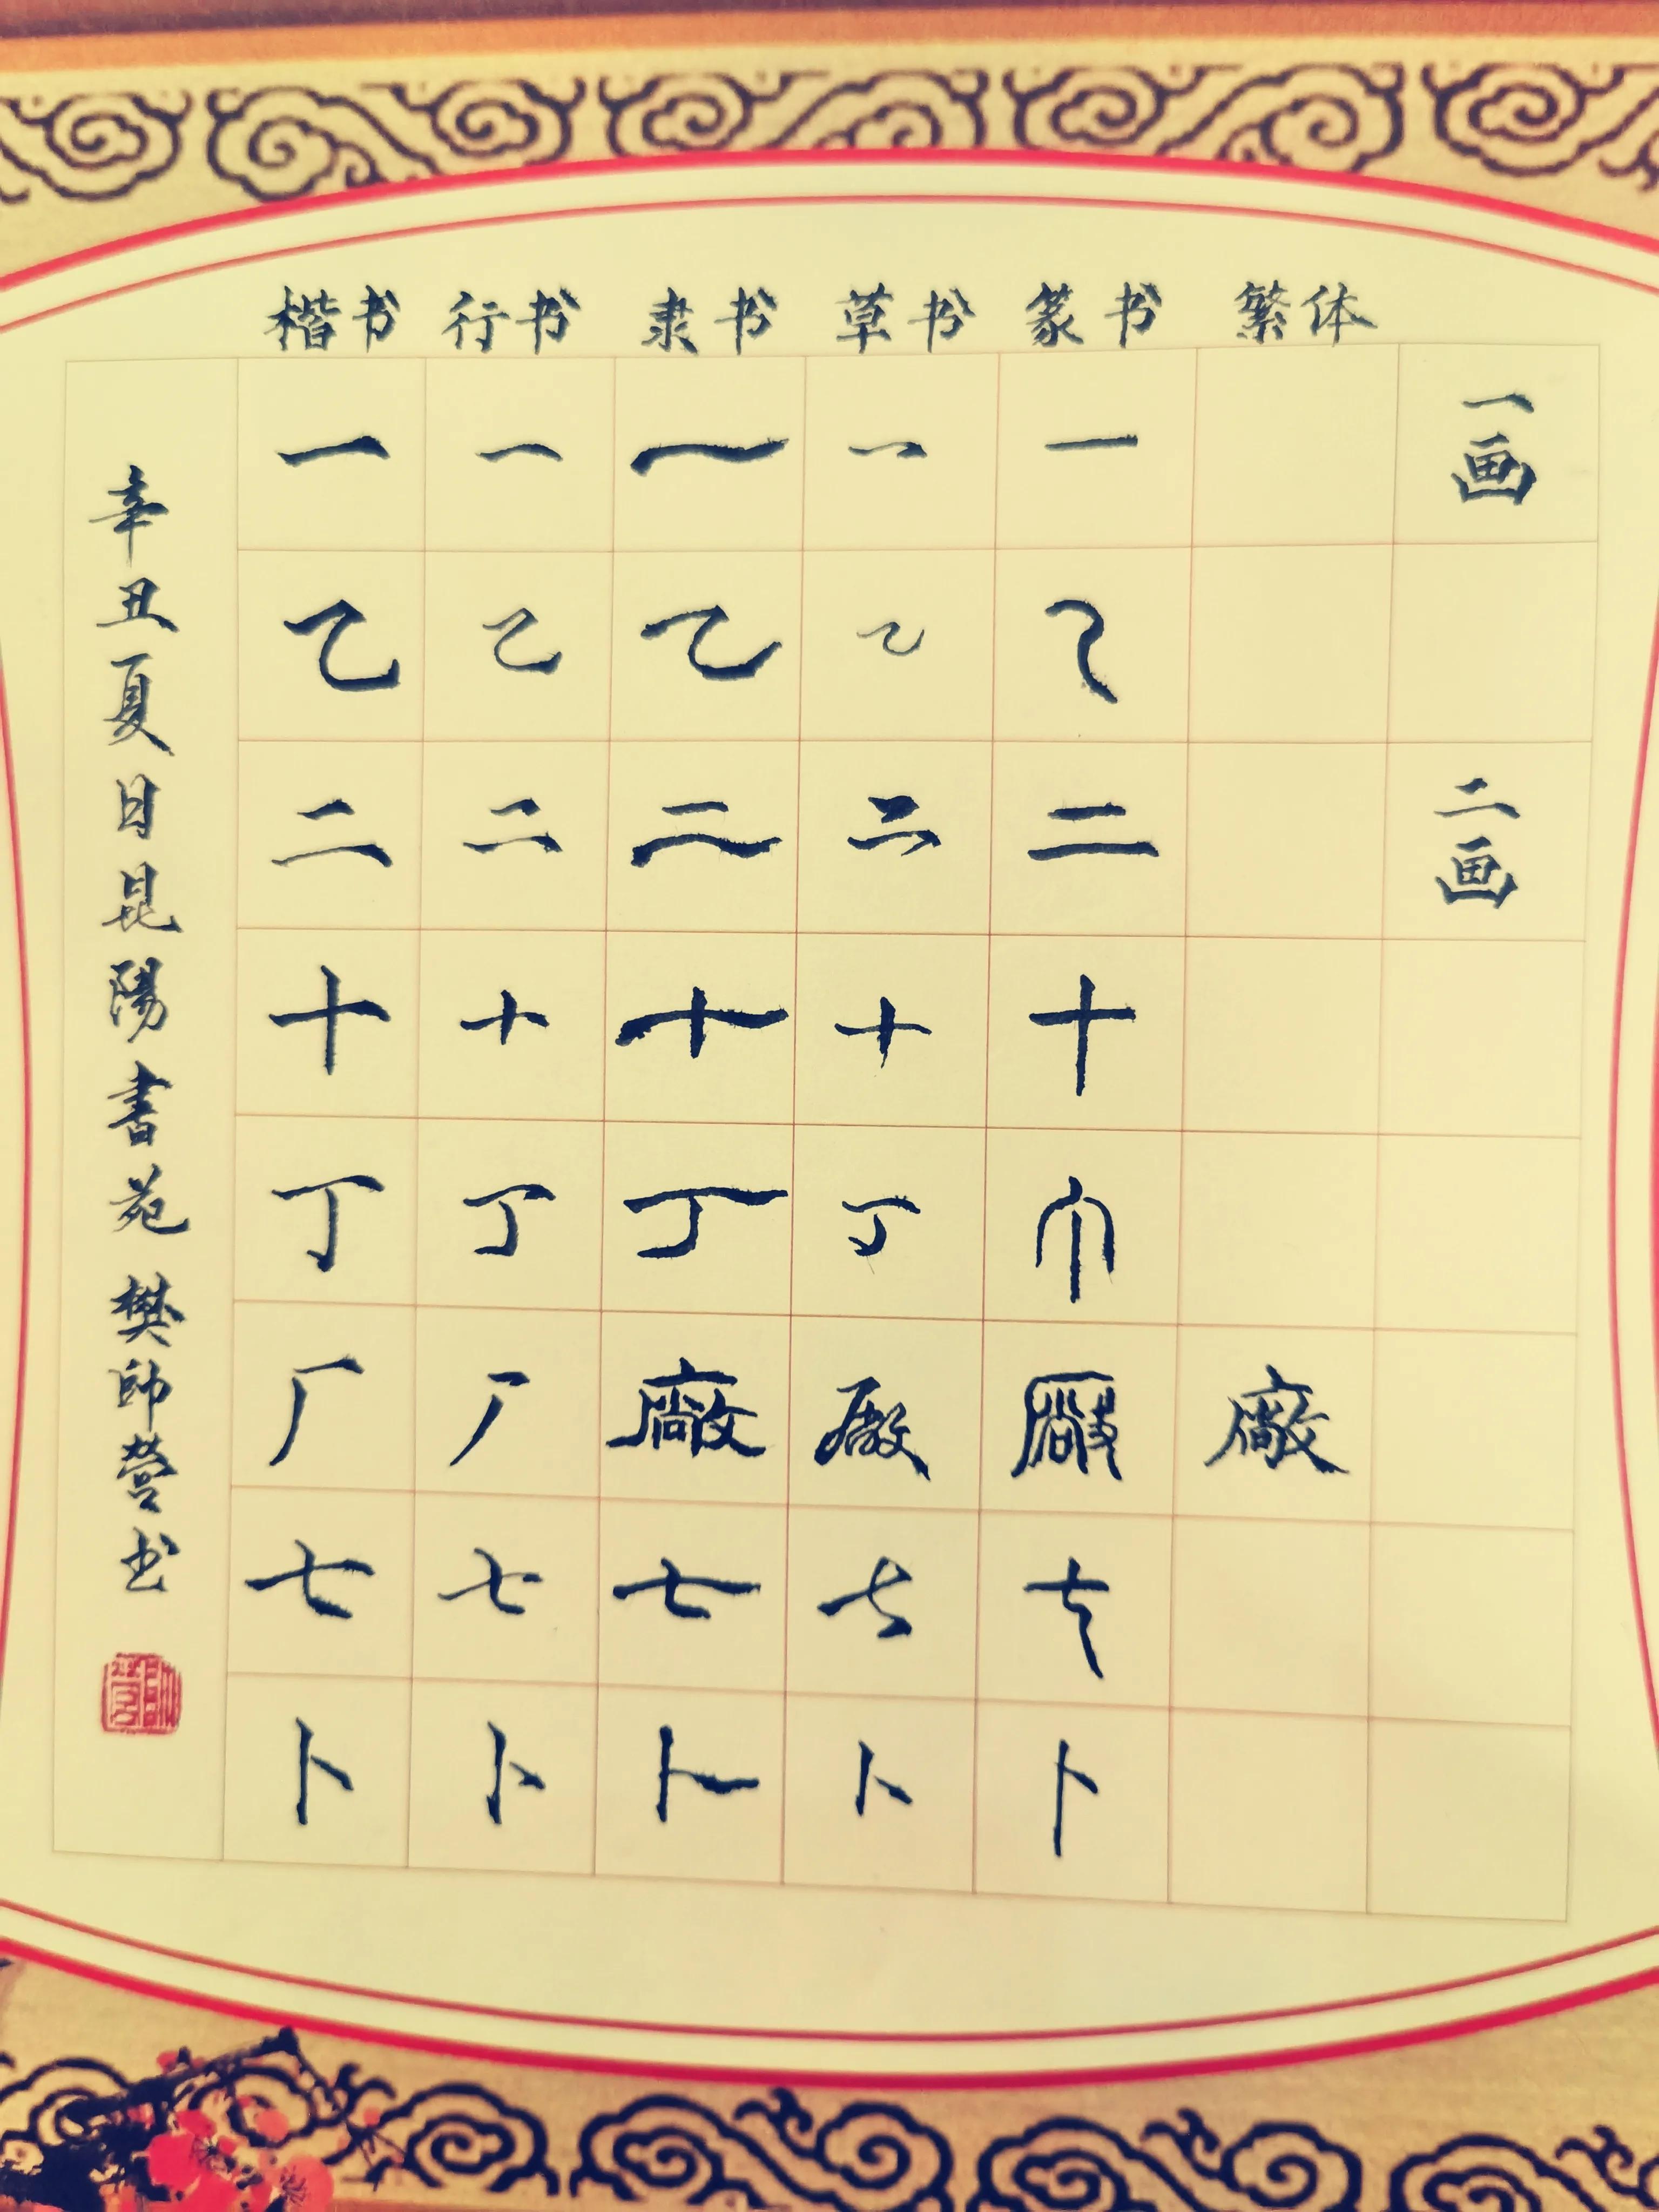 楷书 行书 隶书 草书 篆书 繁体
一 一 一 一 一 一画
乙 乙 乙 乙 乙
二 二 二 二 二 二画
十 十 十 十 十
丁 丁 丁 丁 丁
厂 厂 廠 廠 廠 廠
七 七 七 七 七
卜 卜 卜 卜 卜
辛丑夏日昆陽書苑 樊帥营书